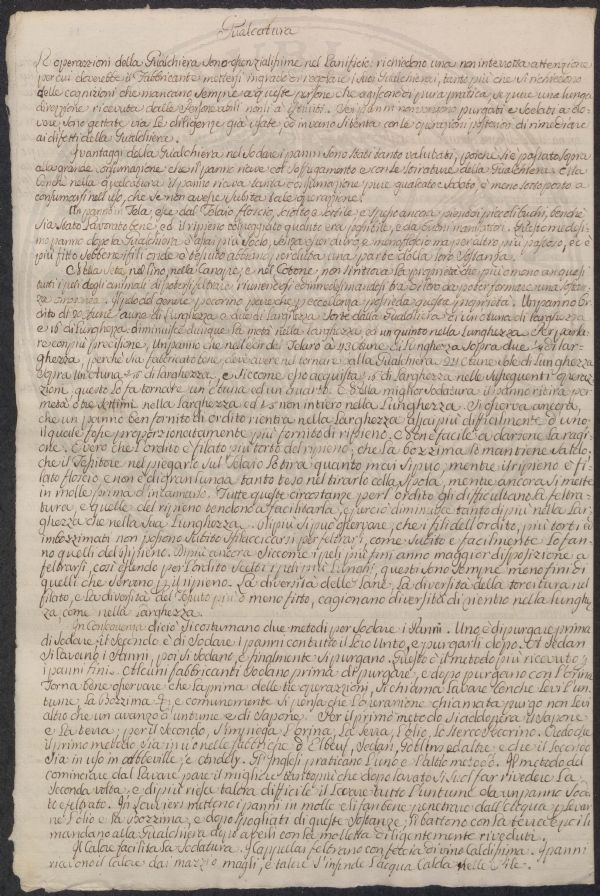 Gualcatura
Le operazioni della Gualchiera sono essenzialissime nel Lanificio: richiedono una non interrotta attenzione
per cui dovrebbe il Fabbricante mettersi in grado di regolare i suoi Gualchierai, tanto più che si richiedono
delle cognizioni che mancano sempre a queste persone che agiscono di pura pratica, se pure una lunga
direzione ricevuta dalle persone abili non li à istruiti. Se i panni non vengono purgati e sodati a do-
vere sono gettate via le diligenze già usate, ed invano si tenta con le operazioni posteriori di rimediare
ai difetti della Gualchiera.
I vantaggi della Gualchiera nel sodare i panni sono stati tanto valutati, poiche si è passato sopra
alla grande consumazione che il panno riceve col soffregamento e con le
benche nella gualcatura il panno riceva tanta consumazione pure gualcato e sodato è meno sottoposto a
consumarsi nell'uso, che se non avesse subita tale operazione.
Un panno in Tela, esce dal Telaio floscio, sciolto e sottile e spesso ancora pieno di piccoli buchi, benchè
sia stato lavorato bene, ed il ripieno quanto era possibile, e da buoni manifattori. Questo medesi-
mo panno dopo la Gualchiera è assai più sodo, senza esser duro, e meno floscio ma per altro più pastoso, ed è
più fitto sebbene i fili onde è tessuto abbiano perduta una parte della loro sostanza.
Nella seta, nel lino, nella Canape, e nel Cotone, non si trova la proprietà che più o meno anno quasi
tutti i peli degli animali di potersi feltrare riunendosi ed immedesimandosi tra di loro da poter formare una sostan-
za Il pelo del genere pecorino pare che per eccellenza possieda questa proprietà. Un panno Or-
dito di 90 cune aune di lunghezza e due di larghezza sorte dalla Gualchiera di un'auna di larghezza
e 18 di lunghezza, diminuisce dunque la metà nella larghezza ed un quinto nella lunghezza. Per parla-
re con più precisione, Un panno che nell'escir del Telaro à 43 Cune di lunghezza sopra due di lar-
ghezza, perchè sia fabbricato bene, deve avere nel tornare alla Gualchiera Cune sole di lunghezza
sopra un'auna di larghezza, e siccome esso acquista di larghezza nelle susseguenti opera-
zioni, questo lo fa tornare un'auna ed un quarto. Nella miglior sodatura il panno ritira per
metà o tre settimi nella larghezza ed 1/5 non intiero nella lunghezza. Si osserva ancora,
che un panno ben fornito di ordito rientra nella larghezza assai più difficilmente d'uno
il quale fosse proporzionatamente più fornito di ripieno. È ben facile a darsene la ragi-
one. È vero che l'ordito è filato più torto del ripieno, che la bozzima lo mantiene saldo,
che il Tessitore nel piegarlo sul Telaio lo tira quanto mai si può, mentre il ripieno è fi-
lato floscio e non è di gran lunga tanto teso nel tirarlo colla Spola, mentre ancora si mette
in molle prima d'intaurarlo. Tutte queste circostanze per l'ordito gli difficultano la feltra-
tura, e quelle del ripieno tendono a facilitarla, e perciò diminuisce tanto di più nella lar-
ghezza che nella sua lunghezza. Di più si può osservare, che i fili dell'ordito, più torti ed
imbozzimati non possono subito sfilaccicarsi per feltrarsi, come subito e facilmente lo fan-
no quelli del ripieno. Di più ancora siccome i peli più fini anno maggior disposizione a
feltrarsi, così essendo per l'ordito scelti i peli più lunghi, questi sono sempre meno fini di
quelli che servano per il ripieno. La diversità delle lane, la diversità della torcitura nel
filato, e la diversità del tessuto più o meno fitto, cagionano diversità di rientro nella lunghe-
zza, come nella larghezza.
In conseguenza di ciò si costumano due metodi per sodare i panni. Uno è di purgare prima
di sodare, il secondo è di sodare i panni con tutto il loro unto, e purgarli dopo. A Sedan
si lavano i panni, poi si sodano, e finalmente si purgano. Questo è il metodo più ricevuto per
i panni fini. Alcuni fabbricanti sodano prima di purgare, e dopo purgano con l'orina.
Torna bene osservare che la prima delle tre operazzioni, si chiama lavare l'onche levi l'un-
tume, la bozzima &, e comunemente si pensa che l'operazione chiamata purgo non levi
altro che un avanzo d'untume e di sapone. Per il primo metodo si addopera il sapone
e la terra, per il secondo, s'impiega l'orina, la terra, l'olio, lo sterco pecorino. Credo che
il primo metodo sia in uso nelle fabbriche d'Elbeuf, Sedan, Goblins ed altre, e che il secondo
sia in uso in abbeville, e Andely. Gl'Inglesi praticano l'uno e l'altro metodo. Il metodo del
cominciare dal lavare pare il migliore tanto più che dopo lavato si suol far rivedere la
seconda volta, e di più riesce talora difficile il levare tutto l'untume da un panno soda-
to e feltrato. In Louviers mettono i panni in molle e li fan bene penetrare dall'acqua, per levar-
ne l'olio e la bozzima, e dopo spogliati di queste sostanze, si battono con la terra e poi li
mandano alla Gualchiera dopo averli con la molletta diligentemente riveduti.
Il Calore facilita la sodatura. I Cappellai feltrano con feccia di vino Caldissima. I panni
ricevono il calore dai mazzi o magli, e talora s'infonde l'acqua calda nelle Pile.